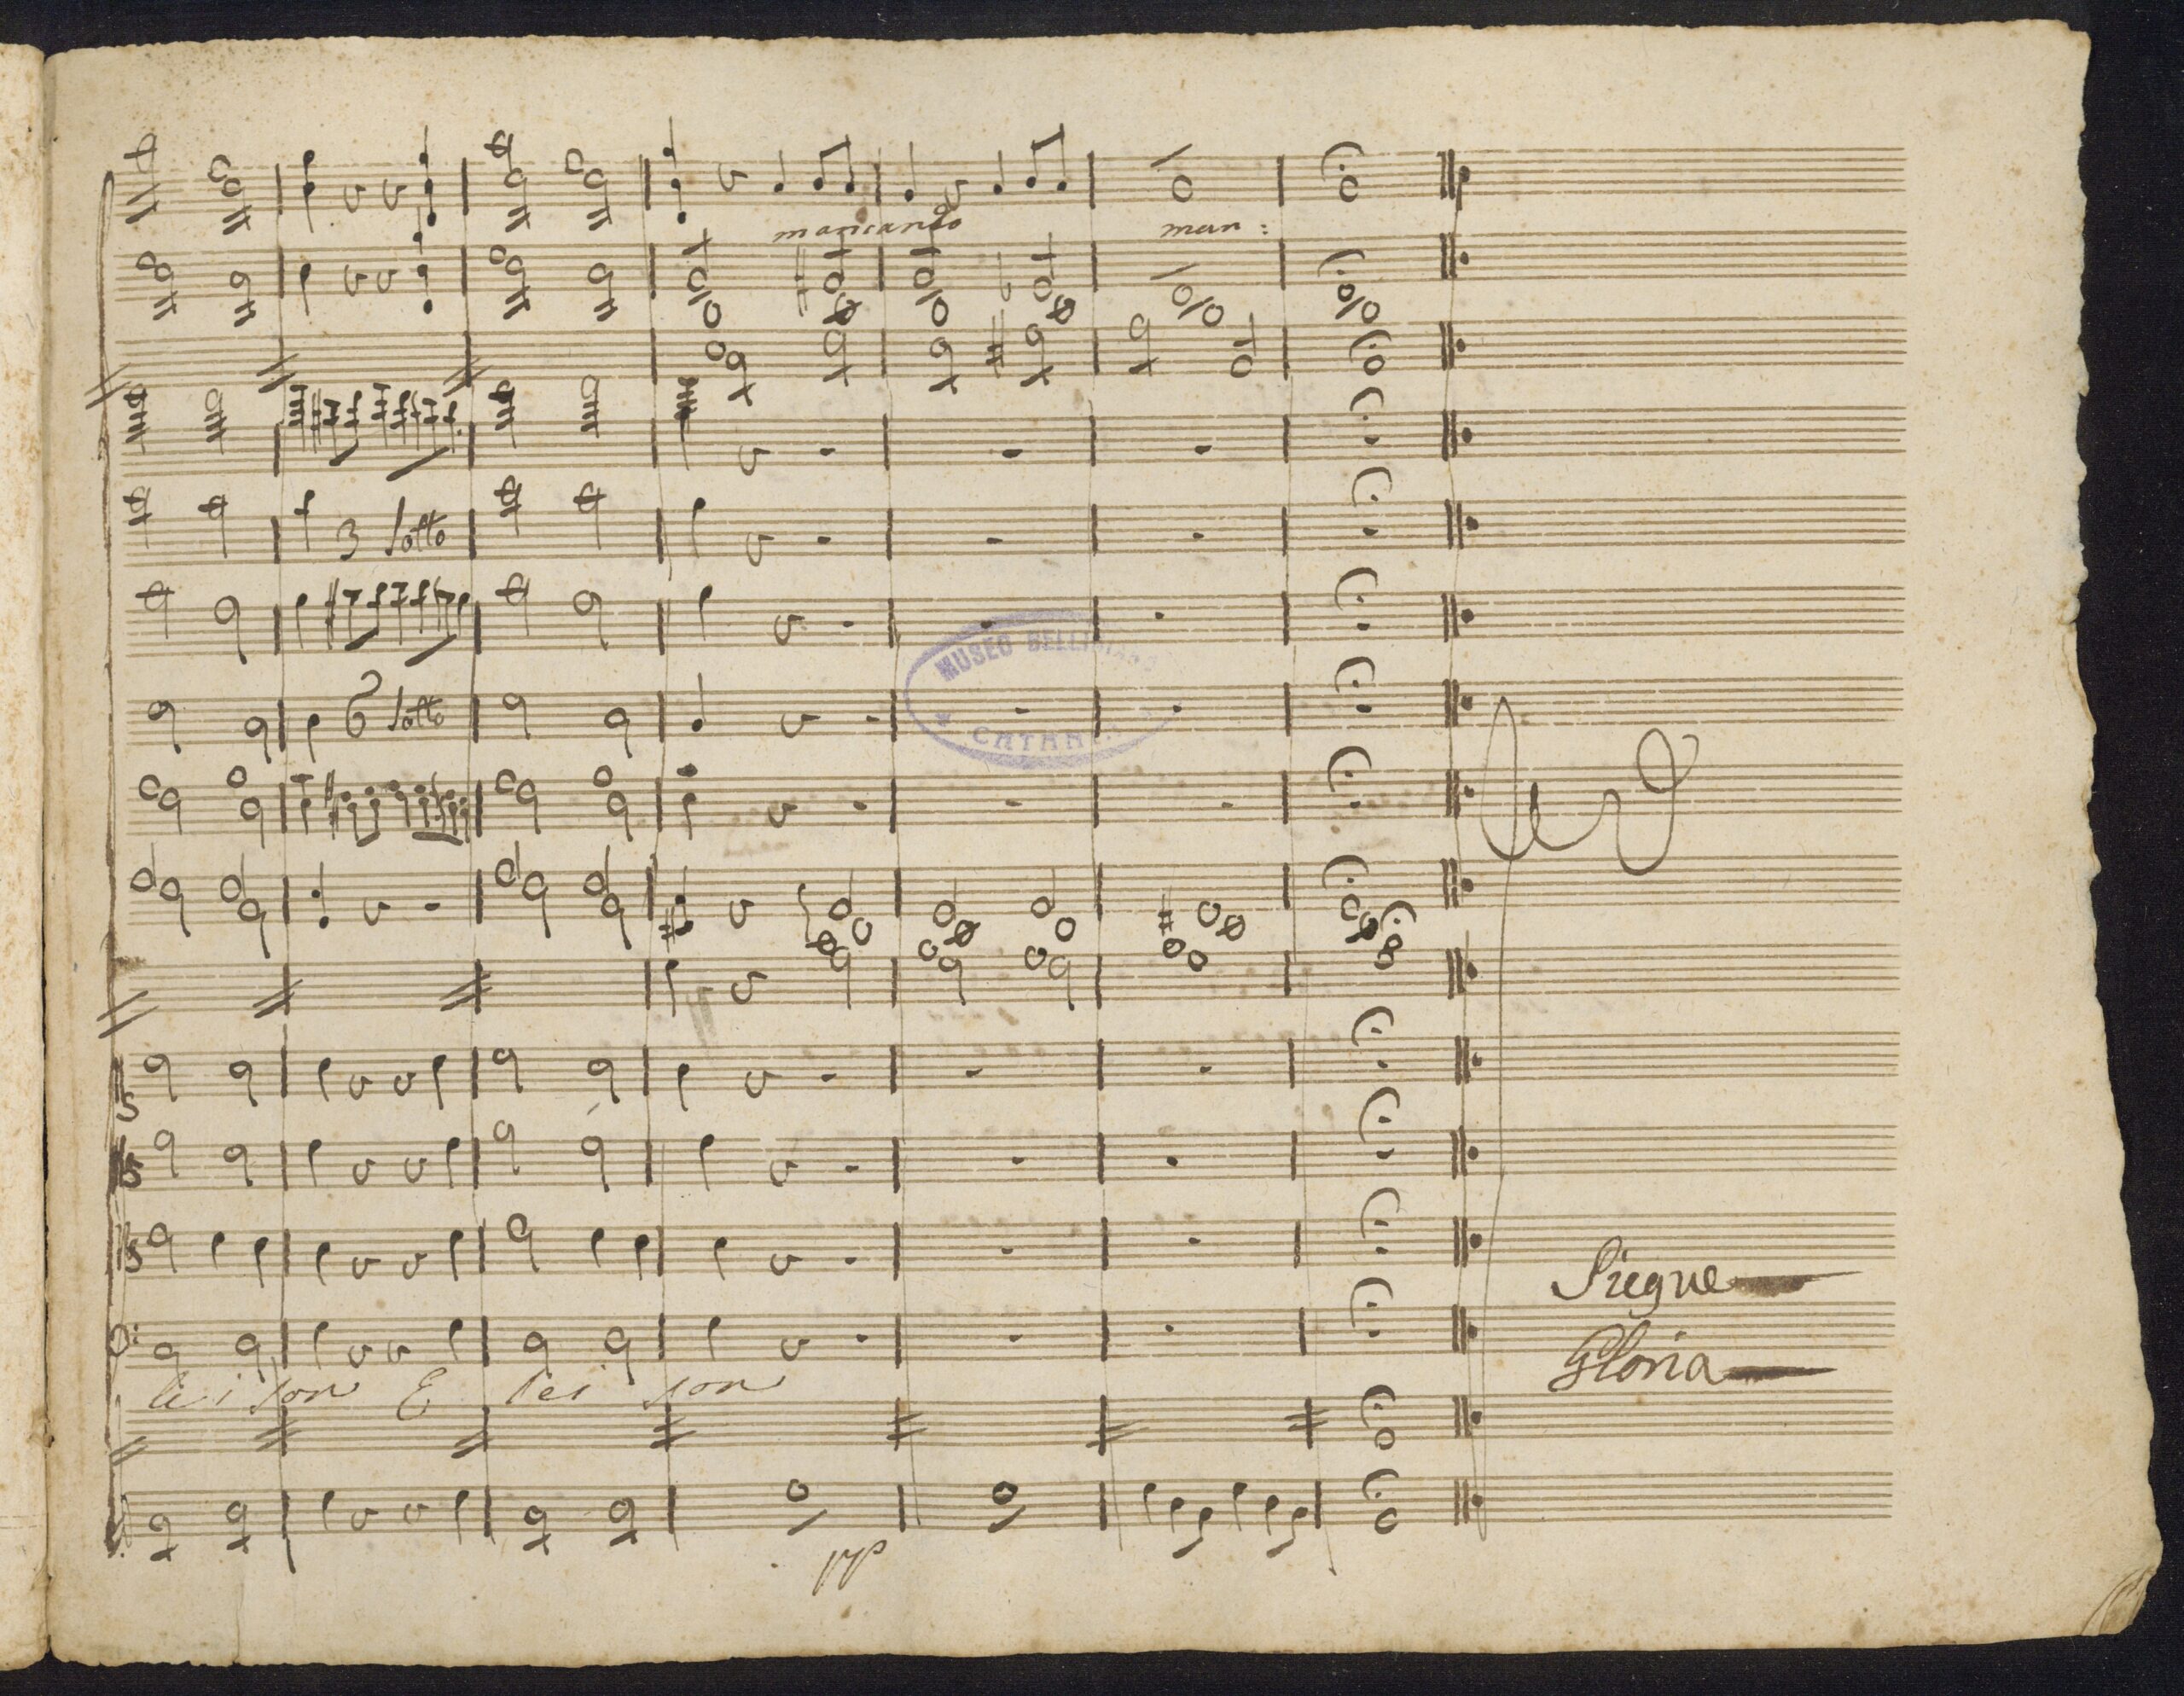 mancando man:
3 sotto
MUSEO BELLINIANO
6 sotto
CATANIA
Siegue
Gloria
lei son E lei son
pp